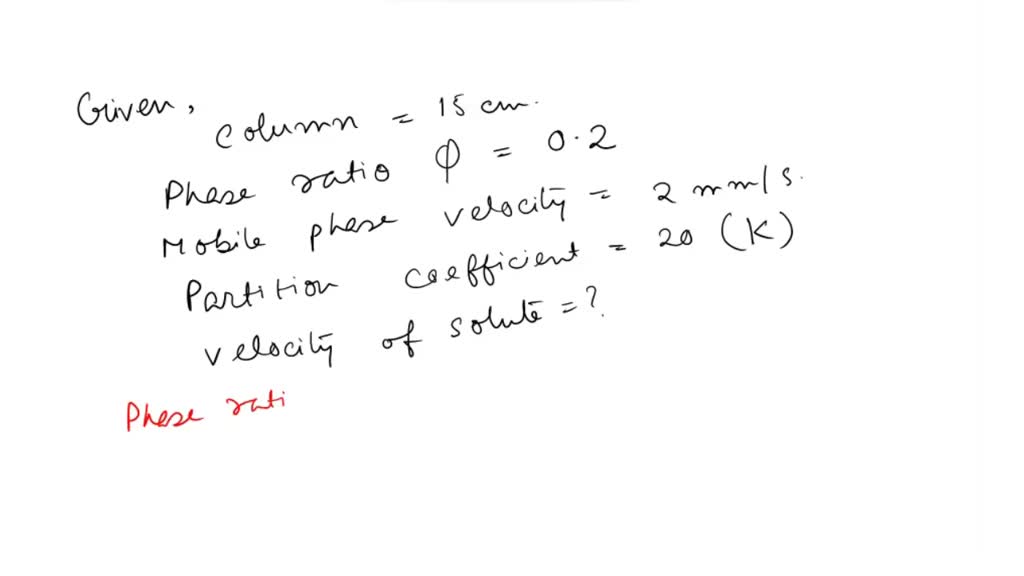 Given,
column = 15 cm.
Phase ratio φ = 0.2
Mobile phase velocity = 2 mm/s.
Partition coefficient = 20 (K)
velocity of solute = ?
Phase rati